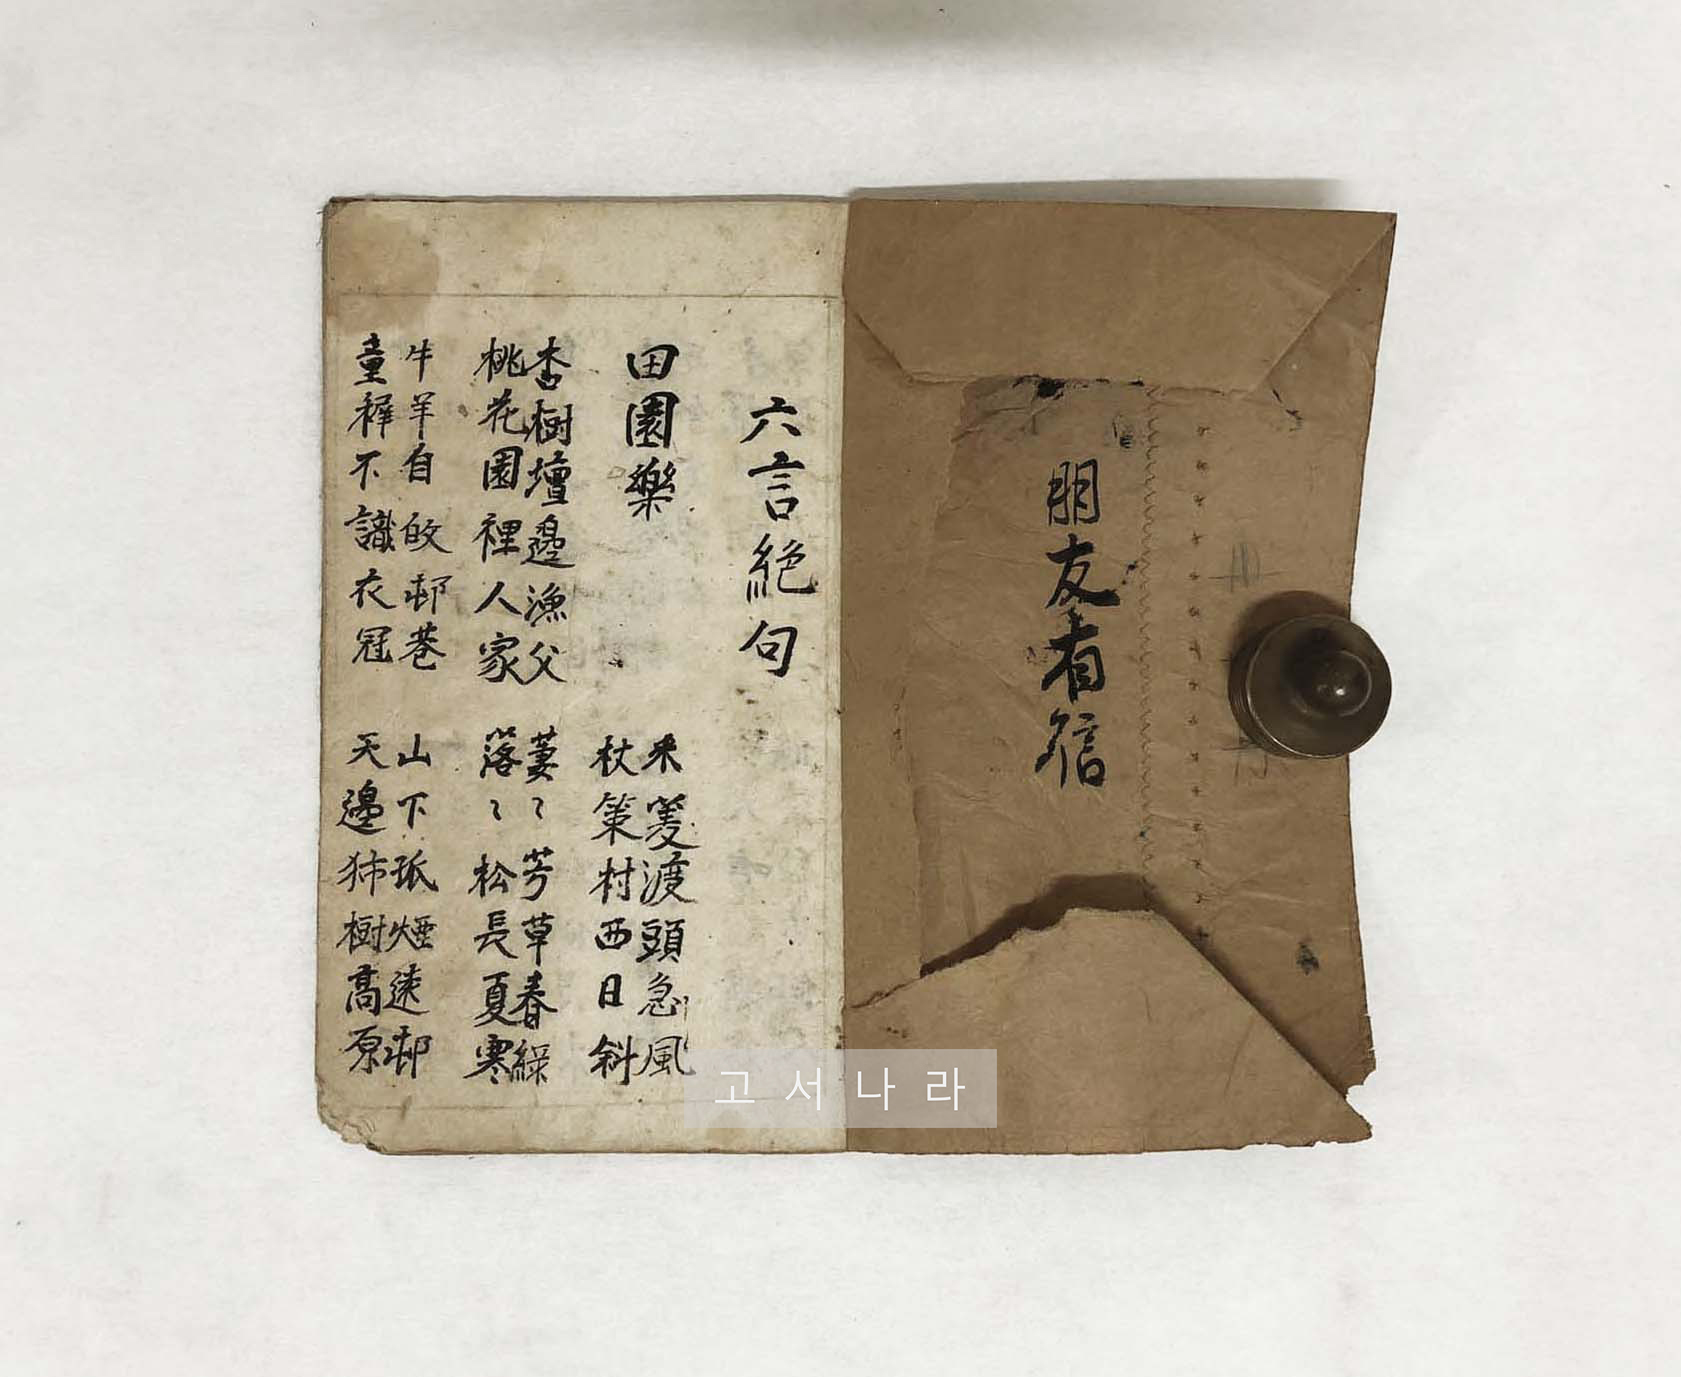 朋友有信
六言絶句
田園樂
采菱渡頭急風
杖策村西日斜
杏樹壇邊漁父
桃花園裡人家
萋〻芳草春綠
落〻松長夏寒
牛羊自皈邨巷
童穉不識衣冠
山下孤煙遠邨
天邊独樹高原
고서나라